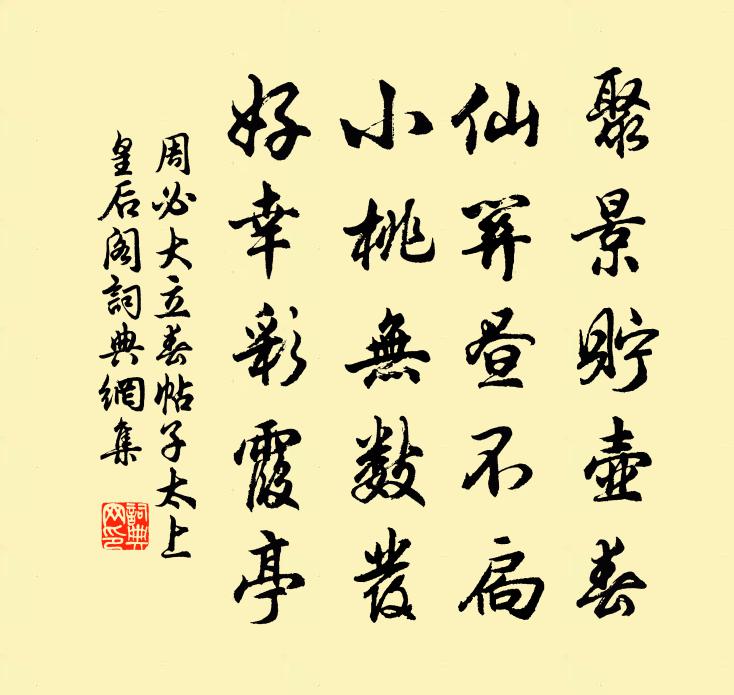 聚景貯壺春
仙葬昼不扃
小桃無數發
好幸彩霞亭
周必大立春帖子太上
皇后阁詞典網集
詞典
网印